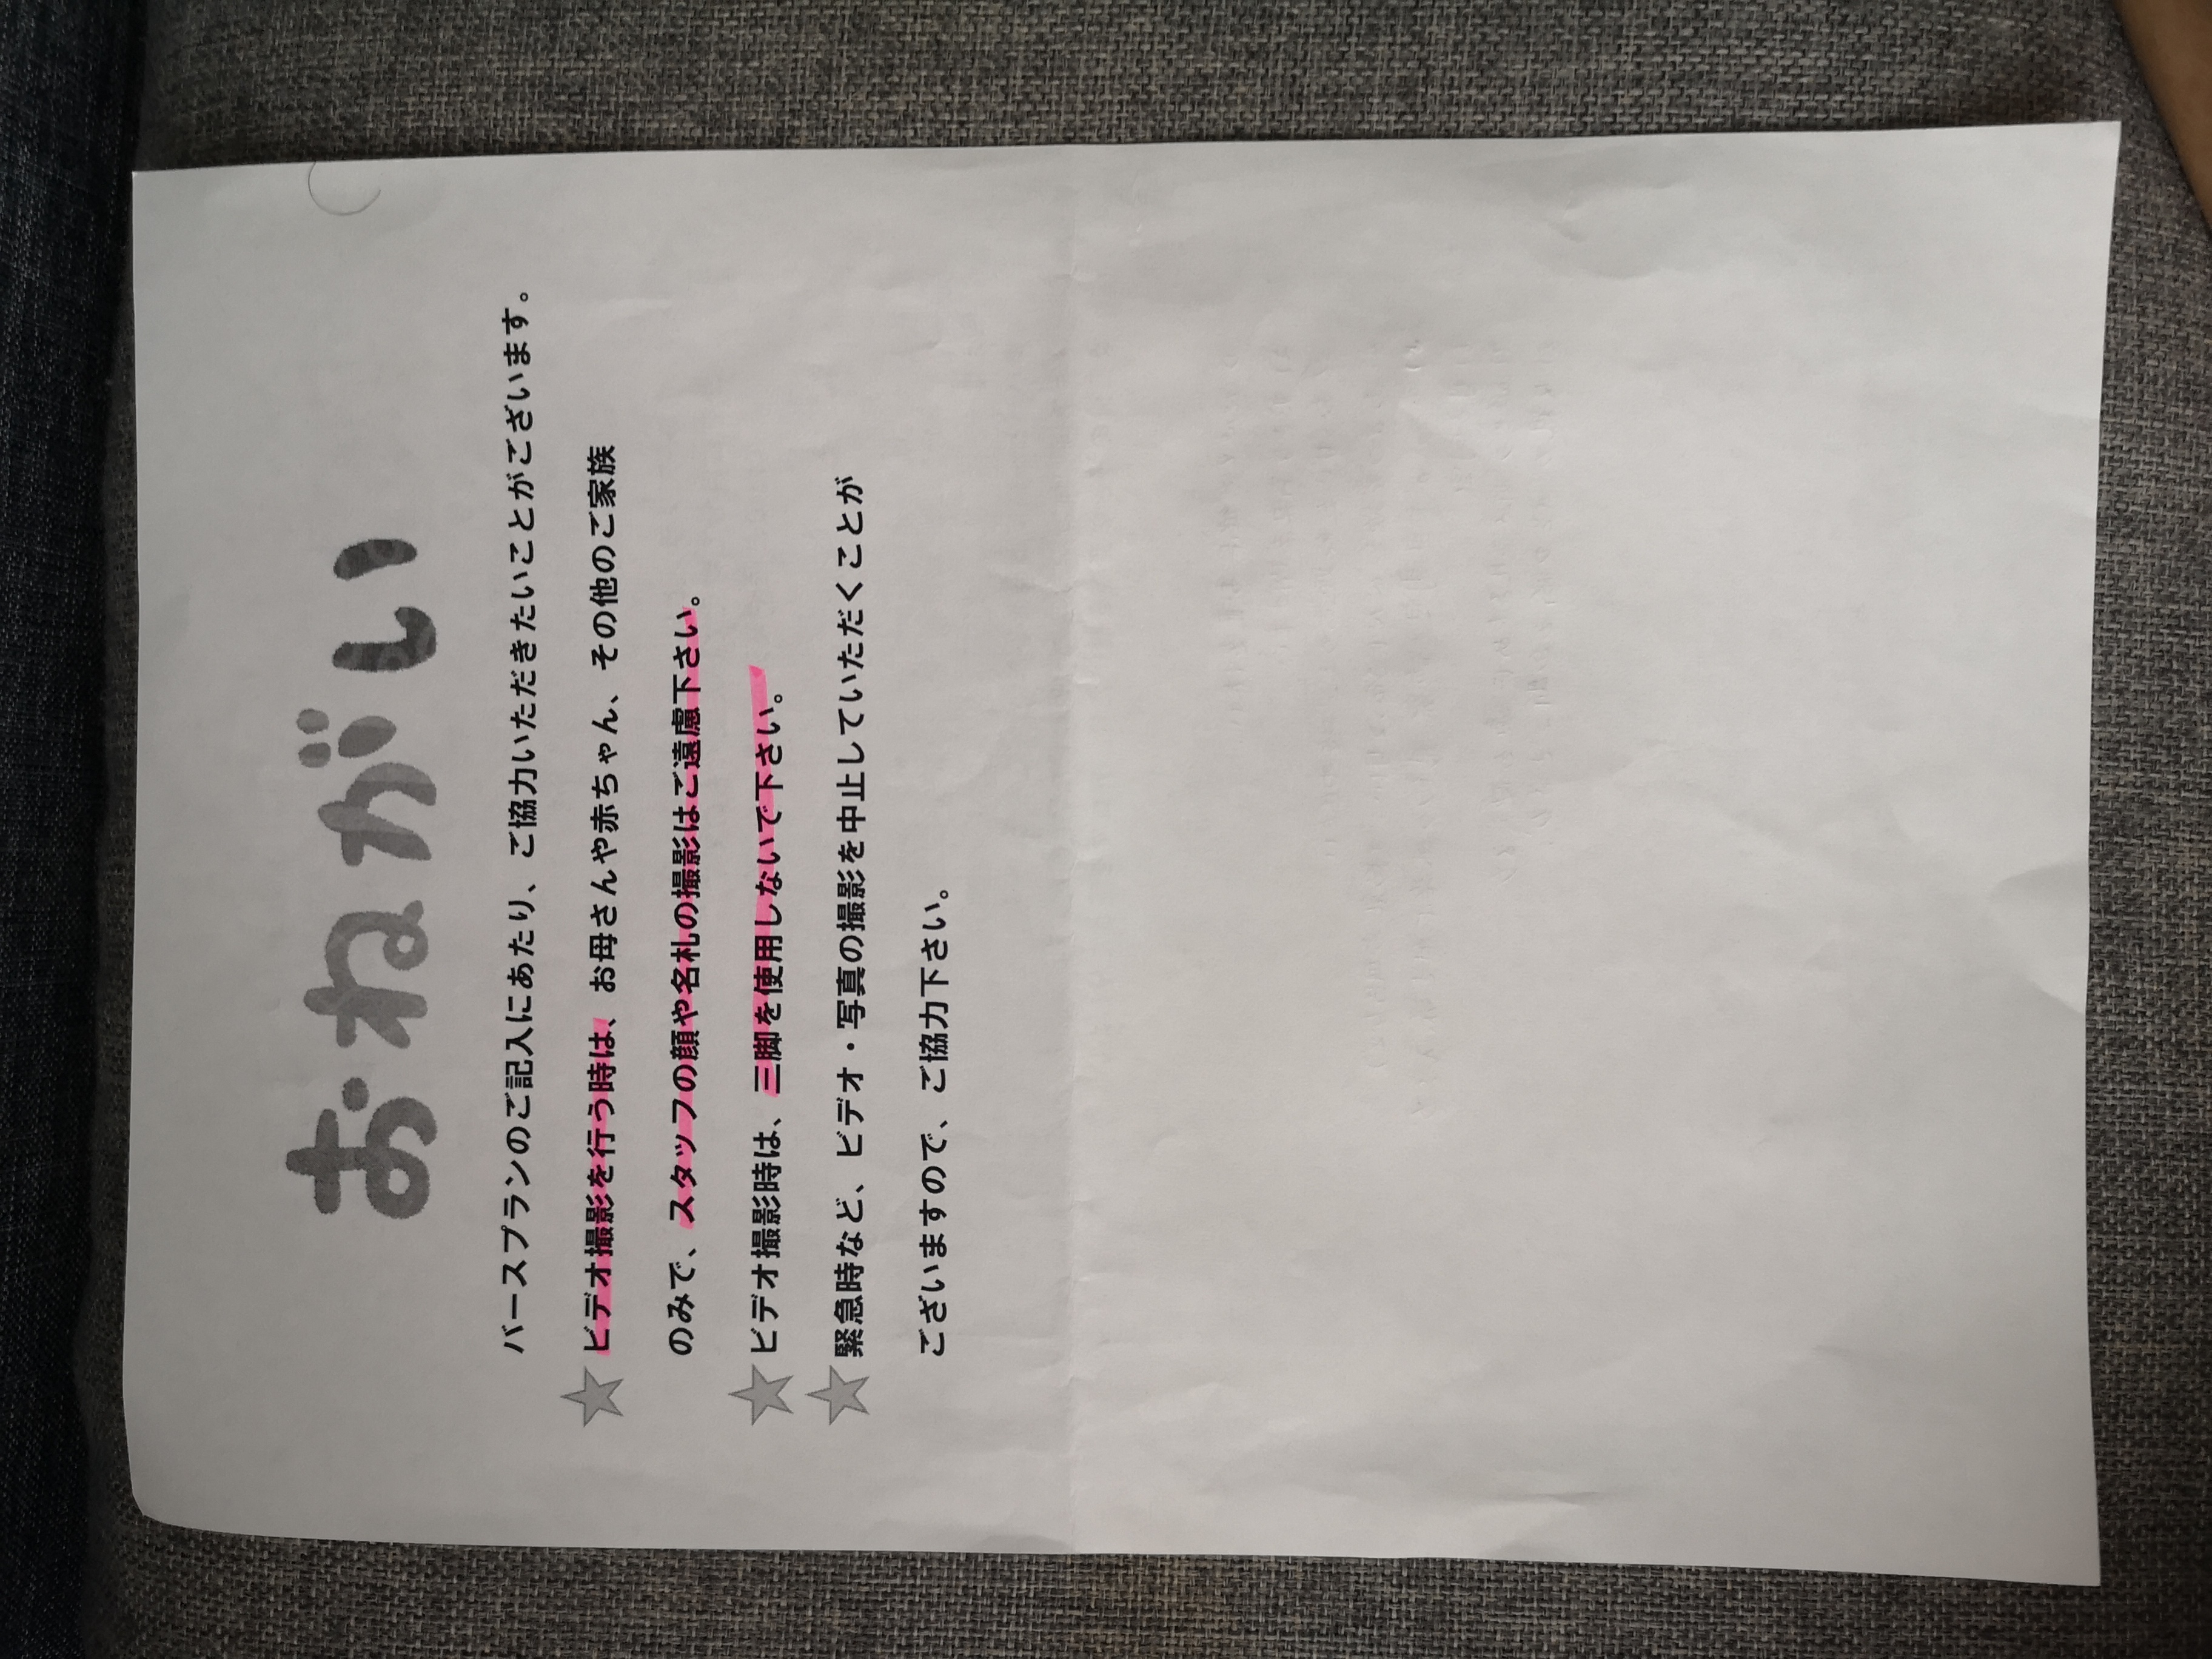 おねがい
バースプランのご記入にあたり、ご協力いただきたいことがございます。
★ビデオ撮影を行う時は、お母さんや赤ちゃん、その他のご家族
のみで、スタッフの顔や名札の撮影はご遠慮下さい。
★ビデオ撮影時は、三脚を使用しないで下さい。
★緊急時など、ビデオ・写真の撮影を中止していただくことが
ございますので、ご協力下さい。